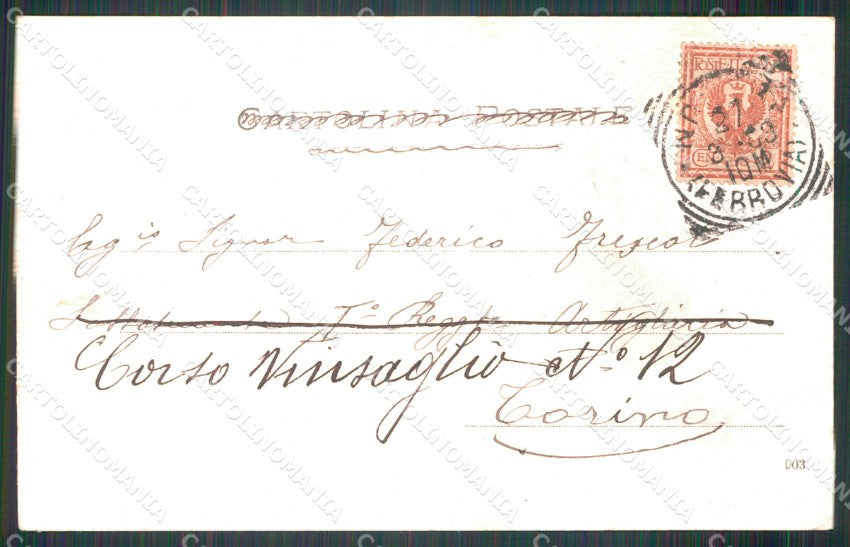 CARTOLINA POSTALE
POSTE
NAPOLI
21
8 03
10 M
(FERROVIA)
Egio Signor Federico Frescot
Sottotenente Io Reggto Artiglieria
Corso Vinzaglio No 12
Torino
903
CARTOLINOMANIA